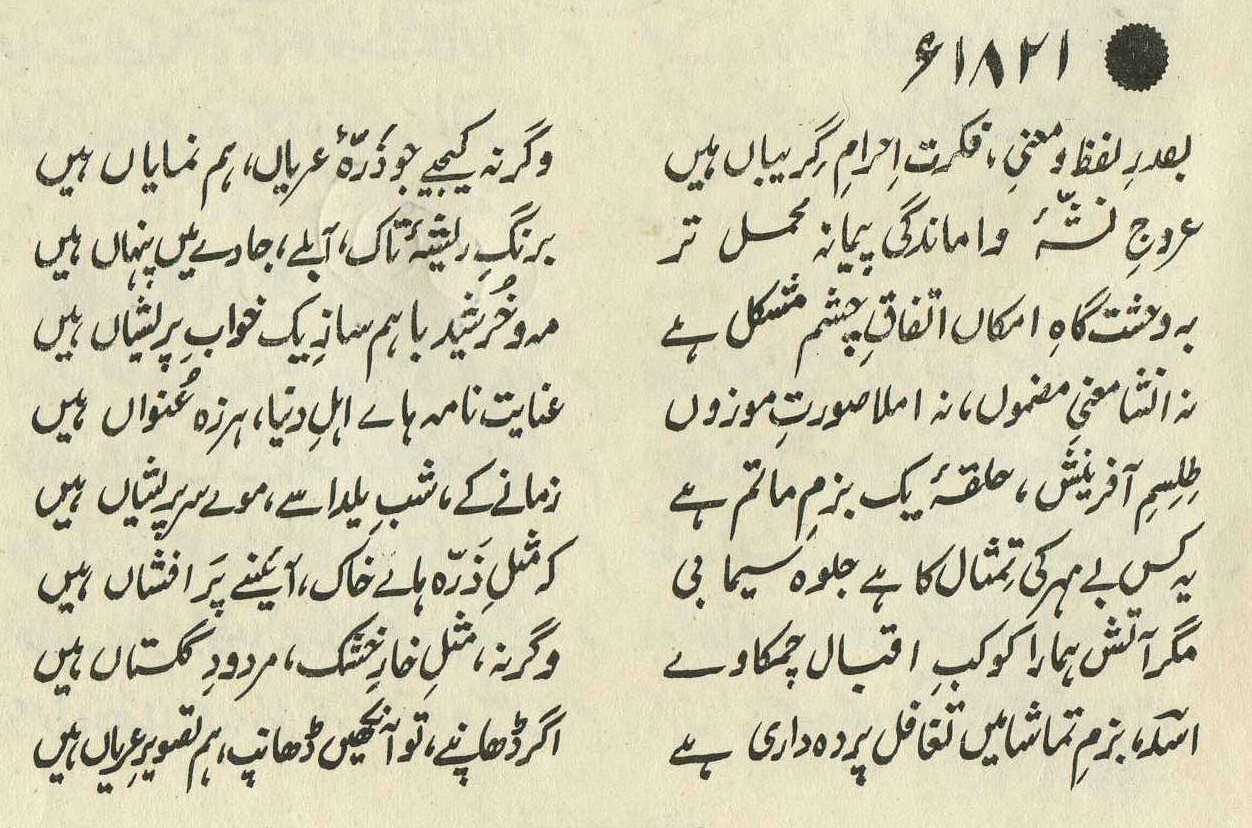 ۱۸۲۱ء
بقدرِ لفظ و معنی، فکرت احرامِ گریباں ہیں وگرنہ کیجیے جو ذرّہٴ عریاں، ہم نمایاں ہیں
عروجِ نشّہٴ واماندگی پیمانہ محمل تر برنگِ ریشہٴ تاک، آبلے، جادے میں پنہاں ہیں
بہ وحشت گاہِ امکاں اتفاقِ چشم مشکل ہے مہ و خُرشید باہم سازِ یک خوابِ پریشاں ہیں
نہ انشا معنیِ مضموں، نہ املا صورتِ موزوں عنایت نامہ ہاے اہلِ دنیا، ہرزہ عُنواں ہیں
طِلِسمِ آفرینش، حلقہٴ یک بزمِ ماتم ہے زمانے کے، شبِ یلدا سے، موے سر پریشاں ہیں
یہ کس بے مہر کی تِمثال کا ہے جلوہ سیمابی کہ مثلِ ذَرّہ ہاے خاک، آئینے پَر افشاں ہیں
مگر آتش ہمارا کوکبِ اقبال چمکاوے وگرنہ، مثلِ خارِ خشک، مردودِ گلستاں ہیں
اسدؔ، بزمِ تماشا میں تغافل پردہ داری ہے اگر ڈھانپے، تو آنکھیں ڈھانپ، ہم تصویرِ عریاں ہیں